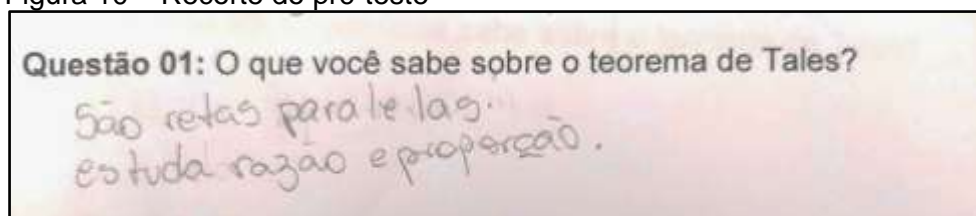 Figura 10 – Recorte do pré-teste
Questão 01: O que você sabe sobre o teorema de Tales?
São retas paralelas.
estuda razão e proporção.